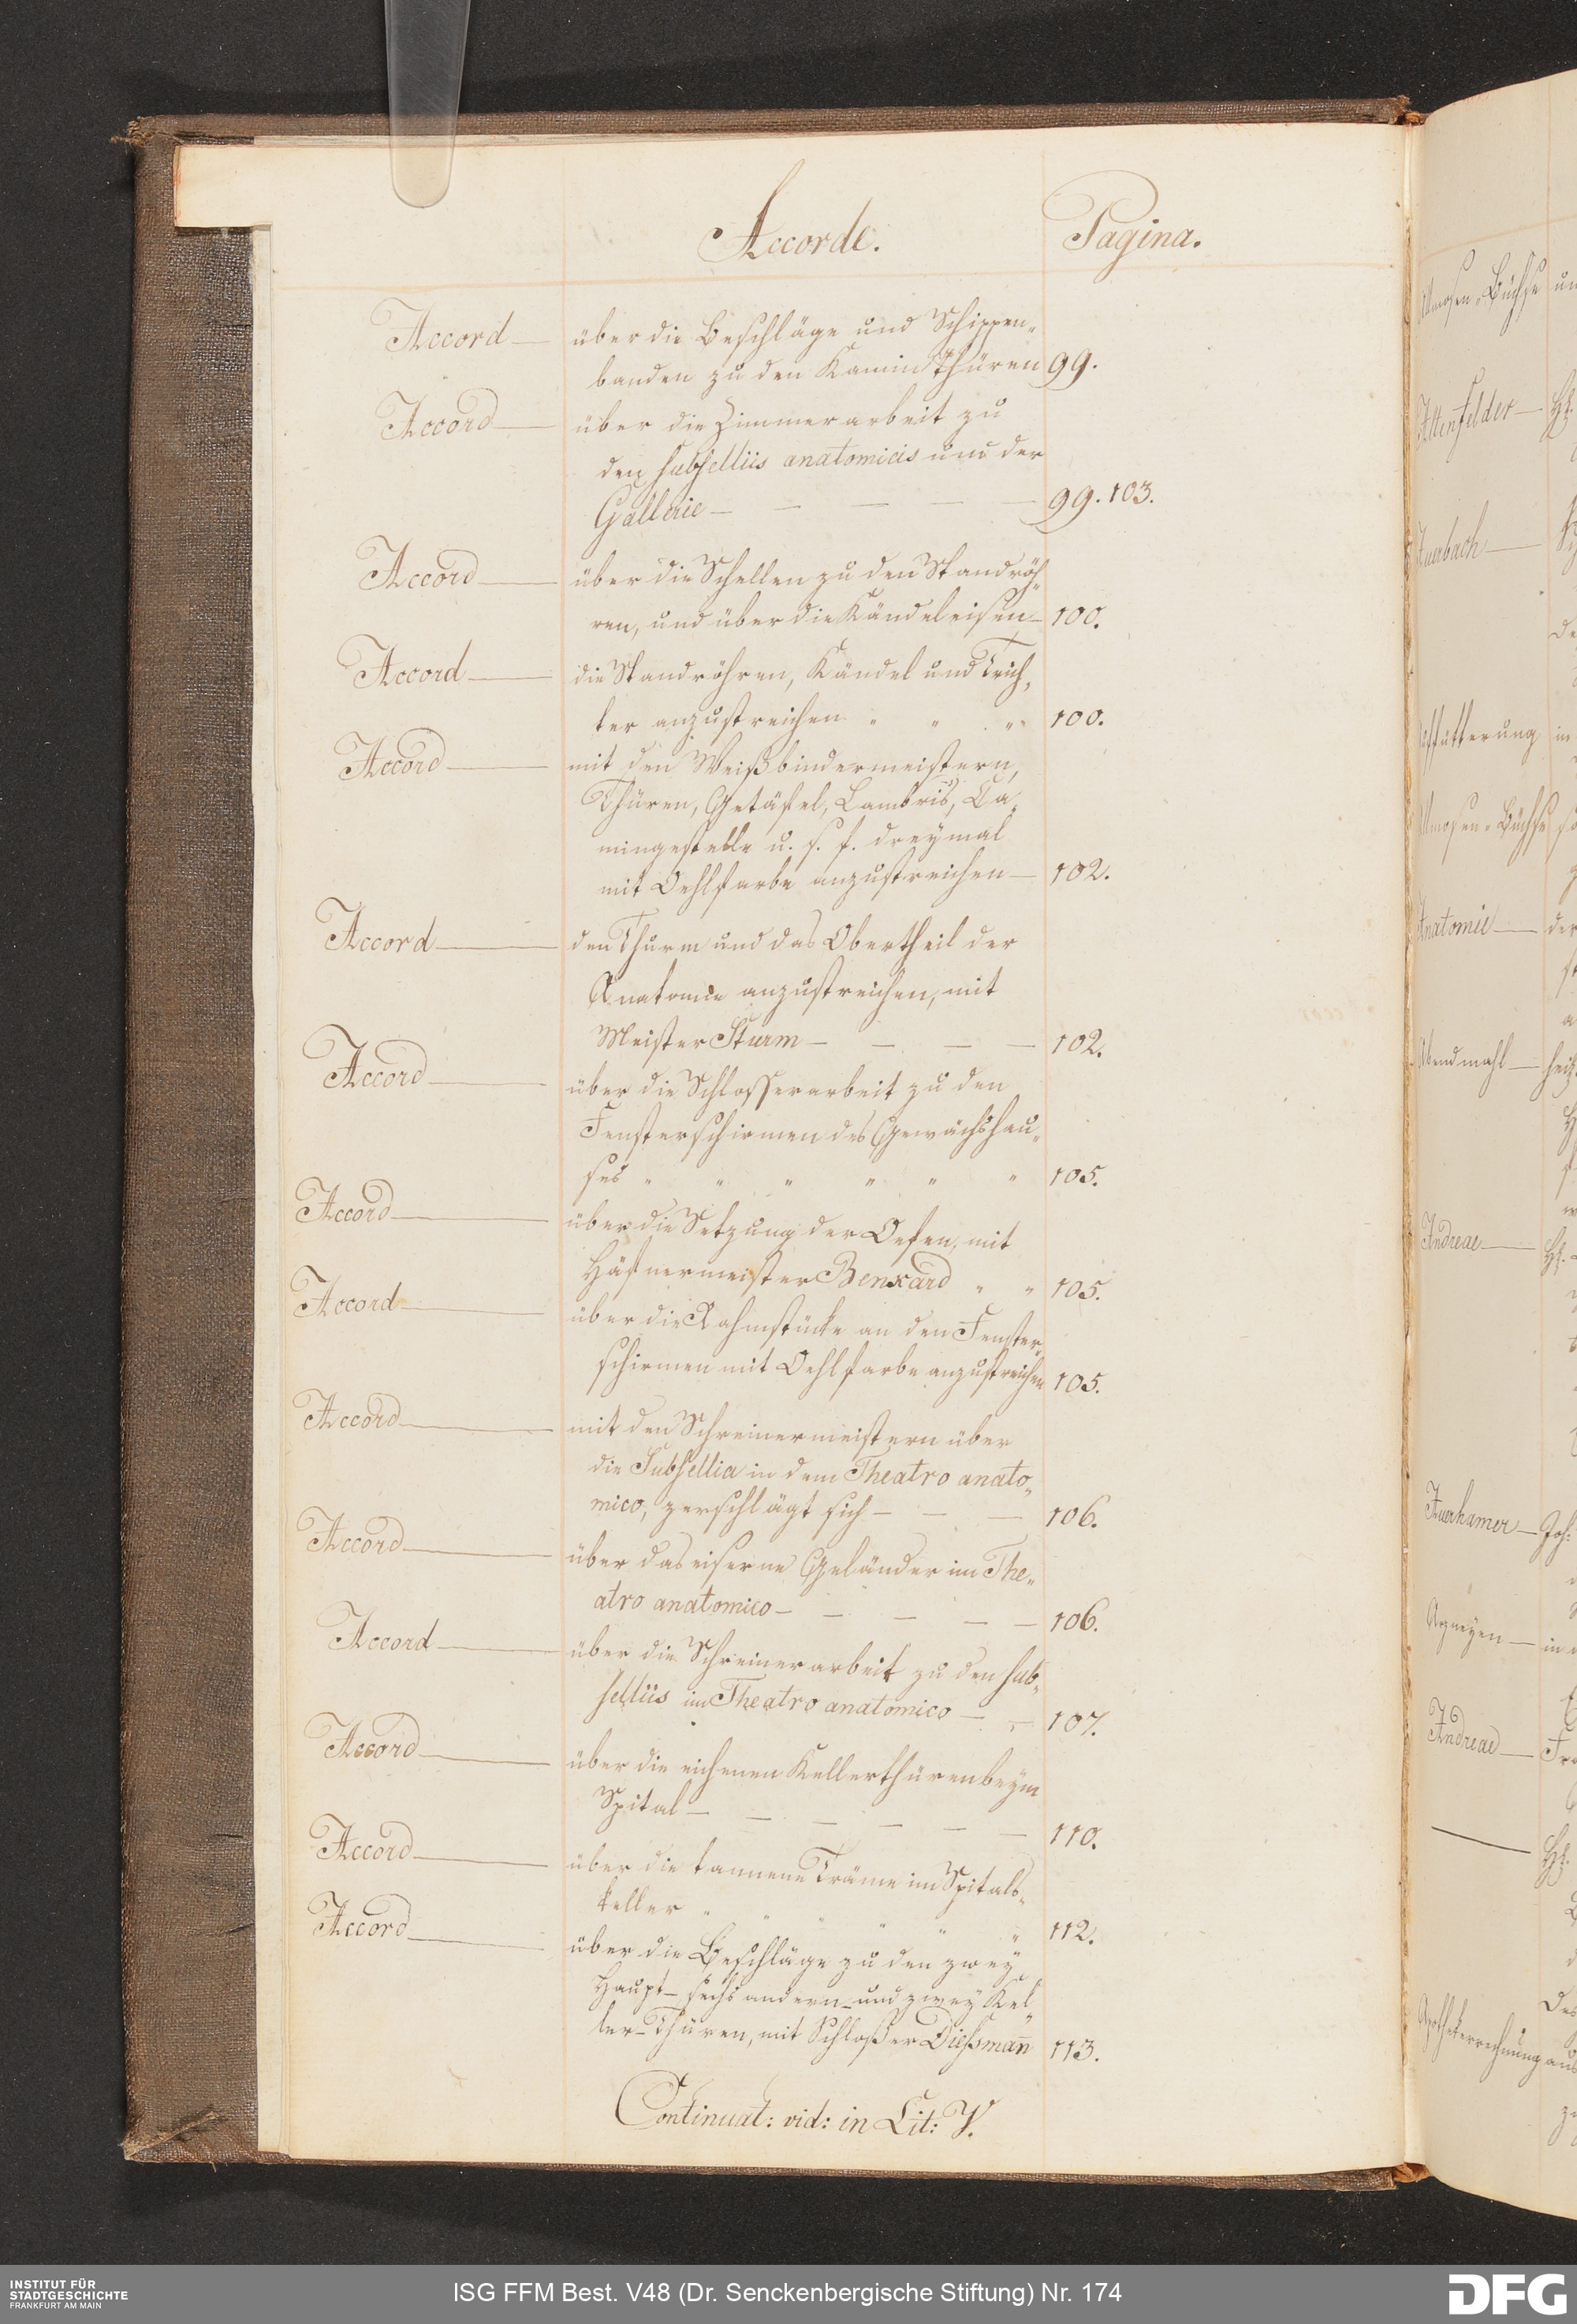 Accorde. Pagina.
Accord — über die Beschläge und Schippen-
banden zu den Kamin Thüren 99.
Accord — über die Zimmerarbeit zu
den subselliis anatomicis und der
Gallerie — — — — — 99. 103.
Accord — über die Schellen zu den Standröh-
ren, und über die Kändeleisen — 100.
Accord — die Standröhren, Kändel und Trich-
ter anzustreichen " " " 100.
Accord — mit den Weißbindermeistern,
Thüren, Getäfel, Lambris, Ca-
mingestelle u. s. f. dreymal
mit Oehlfarbe anzustreichen — 102.
Accord — den Thurm und das Obertheil der
Anatomie anzustreichen, mit
Meister Sturm — — — — 102.
Accord — über die Schlosserarbeit zu den
Fensterschirmen des Gewächshau-
ses " " " " " " 105.
Accord — über die Setzung der Oefen, mit
Häfnermeister Benkard " " 105.
Accord — über die Rahmstücke an den Fenster-
schirmen mit Oehlfarbe anzustreichen 105.
Accord — mit den Schreinermeistern über
die Subsellia in dem Theatro anato-
mico, zerschlägt sich — — — 106.
Accord — über das eiserne Geländer im The-
atro anatomico — — — — — 106.
Accord — über die Schreinerarbeit zu den sub-
selliis im Theatro anatomico — — 107.
Accord — über die eichenen Kellerthüren beym
Spital — — — — — — 110.
Accord — über die tannene Träme im Spitals-
keller " " " " " " 112.
Accord — über die Beschläge zu den zwey
Haupt- sechs andern- und zwey Kel-
ler-Thüren, mit Schloßer Dießman̄ 113.
Continuat: vid: in Lit: V.
Almosen-Büchse
Altenfelder —
Auerbach —
Almosen-Büchse
Anatomie — der
Abendmahl —
Andreae —
Auerhamer — Joh:
Arzneyen — in
Andreae —
Apothekerrechnung aus
INSTITUT FÜR
STADTGESCHICHTE
FRANKFURT AM MAIN
ISG FFM Best. V48 (Dr. Senckenbergische Stiftung) Nr. 174
DFG